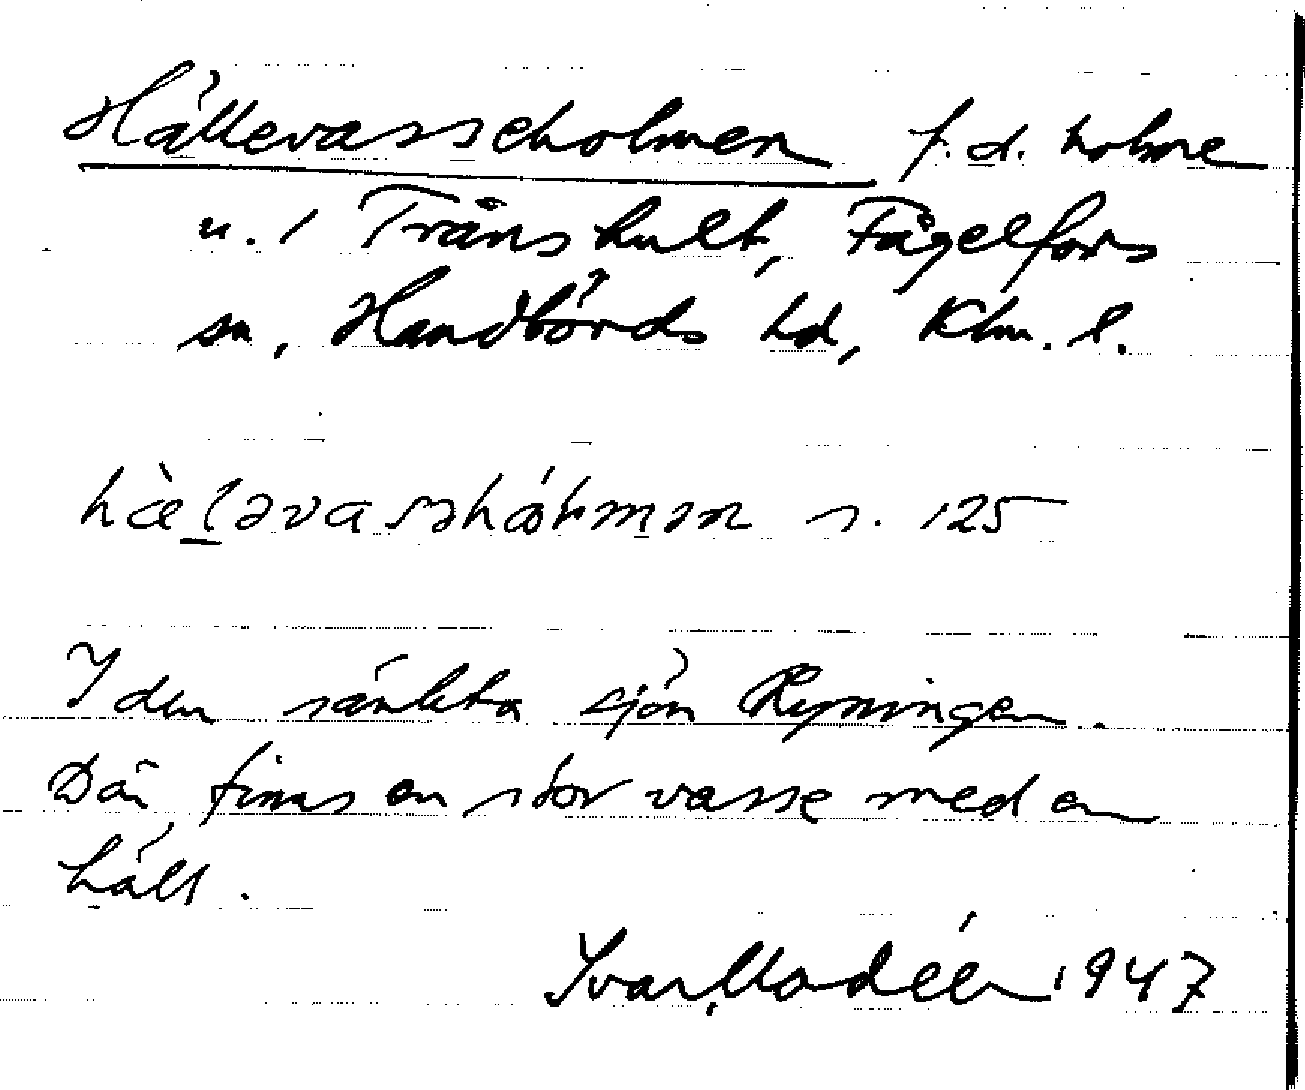 Hällevasseholmen f.d. holme
u. 1 Tränshult, Fågelfors
sn, Handbörds hd, Klm. l.
hæ̀l̠əvasəhɔ́lmən s. 125
I den sänkta sjön Ryningen.
Där finns en stor vasse med en
häll.
Ivar Modéer 1947